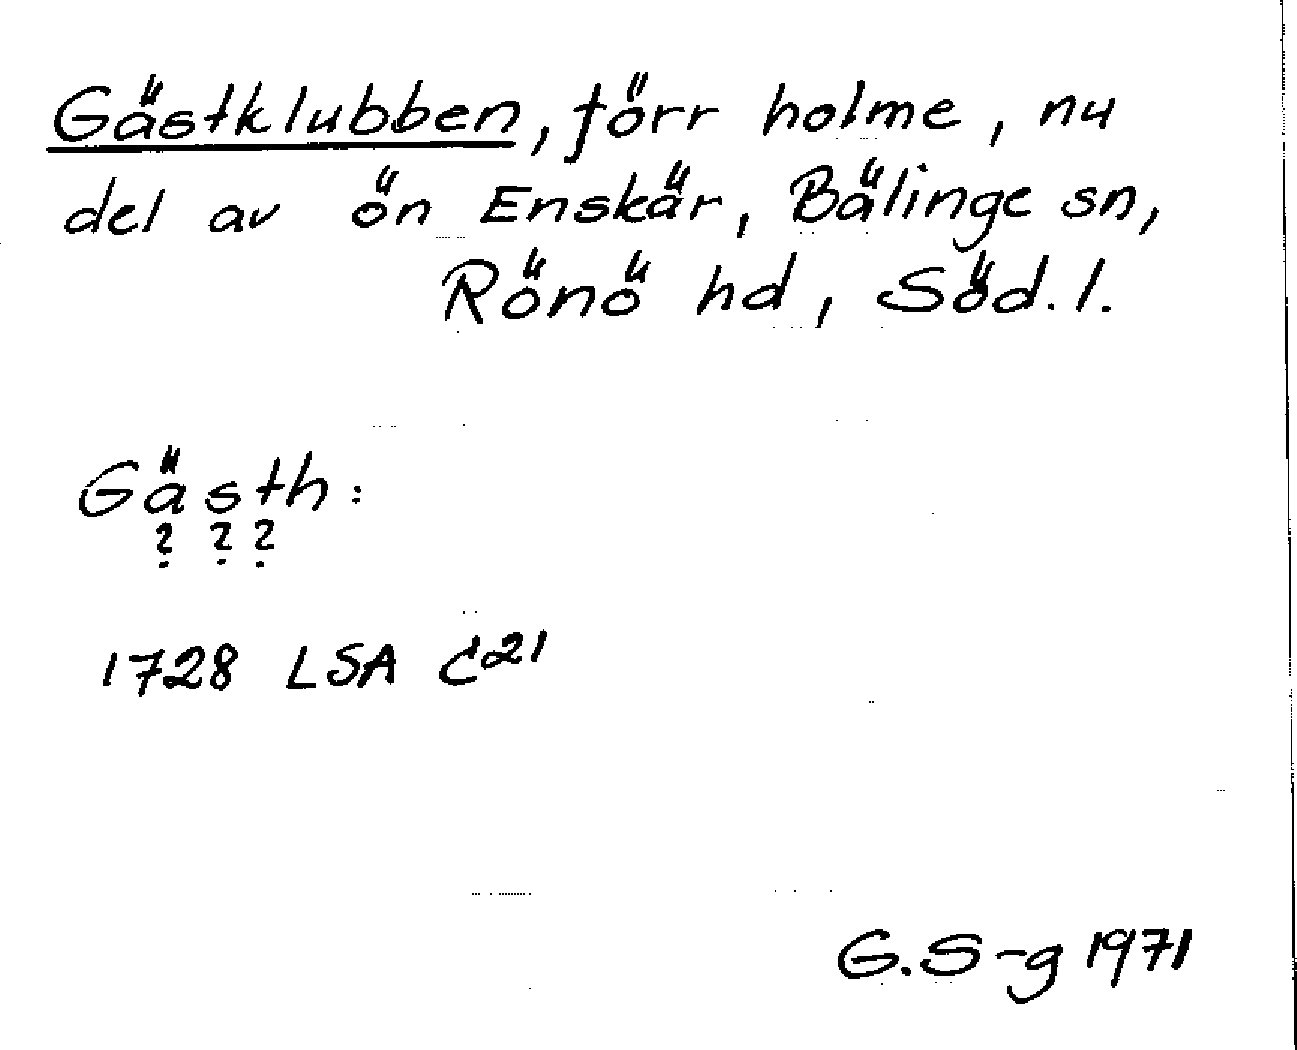 Gästklubben, förr holme, nu
del av ön Enskär, Bälinge sn,
Rönö hd, Söd. l.
Gästh:
? ? ?
1728 LSA C21
G.S-g 1971